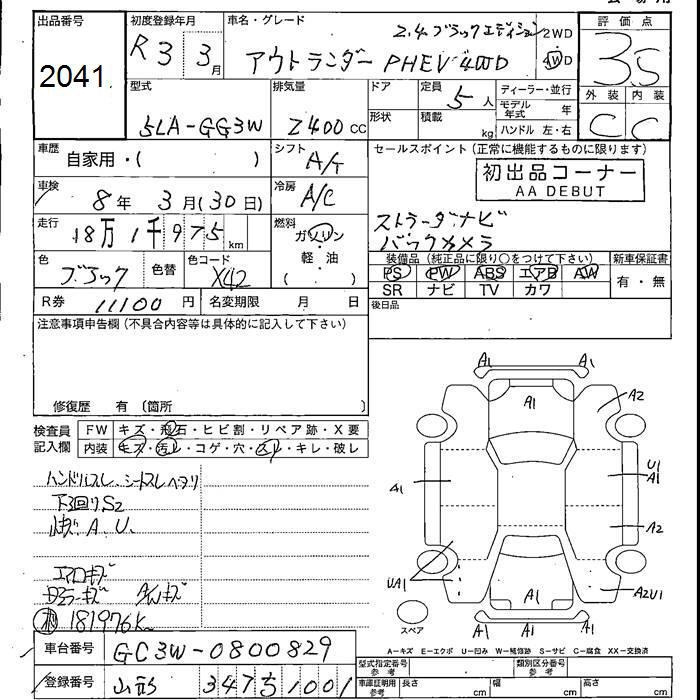 出品番号 初度登録年月 車名・グレード 評価点
2041 R3 3月 2.4.ブラックエディション 2WD
アウトランダー PHEV 4WD 4WD 3.5
型式 排気量 ドア 定員 5人 ディーラー・並行 外装 内装
モデル年式 年
5LA-GG3W 2400cc 形状 積載 kg ハンドル 左・右 C C
車歴 自家用・( ) シフト A/T セールスポイント(正常に機能するものに限ります)
初出品コーナー
AA DEBUT
車検 8年 3月(30日) 冷房 A/C
走行 18万1千975km 燃料 ガソリン・軽・油 ( )
ストラーダナビ
バックカメラ
色 ブラック 色替 色コード X42
装備品(純正品に限り○をつけて下さい) 新車保証書
PS PW ABS エアB AW 有・無
SR ナビ TV カワ
R券 11100円 名変期限 月 日
後日品
注意事項申告欄(不具合内容等は具体的に記入して下さい)
修復歴 有〔箇所 〕
検査員記入欄 FW キズ・飛石・ヒビ割・リペア跡・X要
内装 キズ・汚レ・コゲ・穴・スレ・キレ・破レ
ハンドルスレ、シートスレヘタリ
下回りS2
A.U.
エアロキズ
ドアミラーキズ AWキズ
181976K
A1 A1
A1 A2
A1 U1
A1
A2
UA1
A2U1
A1 A1 A1
スペア
A-キズ E-エクボ U-凹み W-補修跡 S-サビ C-腐食 XX-交換済
車台番号 GG3W-0800829
登録番号 山形 347 ち 1001
型式指定番号 参考 類別区分番号 参考
車庫証明用 参考 長さ cm 幅 cm 高さ cm